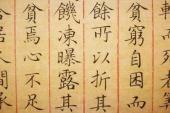 貧窮自困而
餘所以折其
饑凍曝露其
貧焉心不足